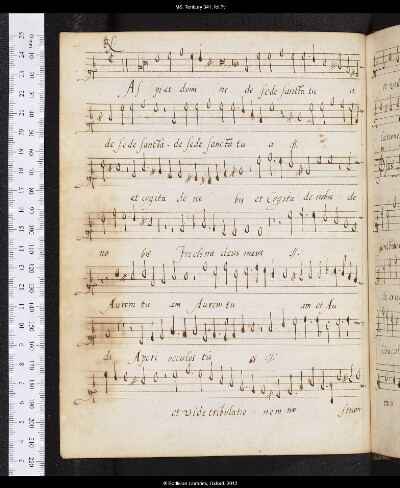 MS. Tenbury 341, fol.7v
As pi et domi ne de sede sancta tu a
de sede sancta de sede sancta tu a :||:
et cogita de no bis et Cogita de nobis de
no bis Inclina deus meus :||:
Aurem tu am Aurem tu am et Au
di Aperi occulos tu os :||:
et vide tribulatio nem no stram
© Bodleian Libraries, Oxford, 2012